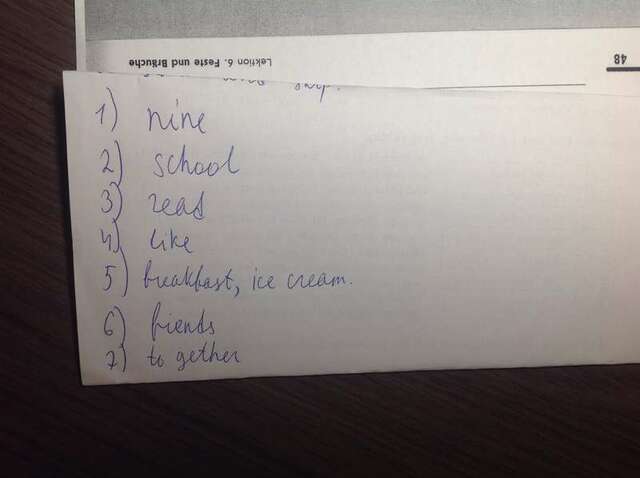 48
Lektion 6. Feste und Bräuche
1) nine
2) school
3) read
4) like
5) breakfast, ice cream.
6) friends
7) to gether